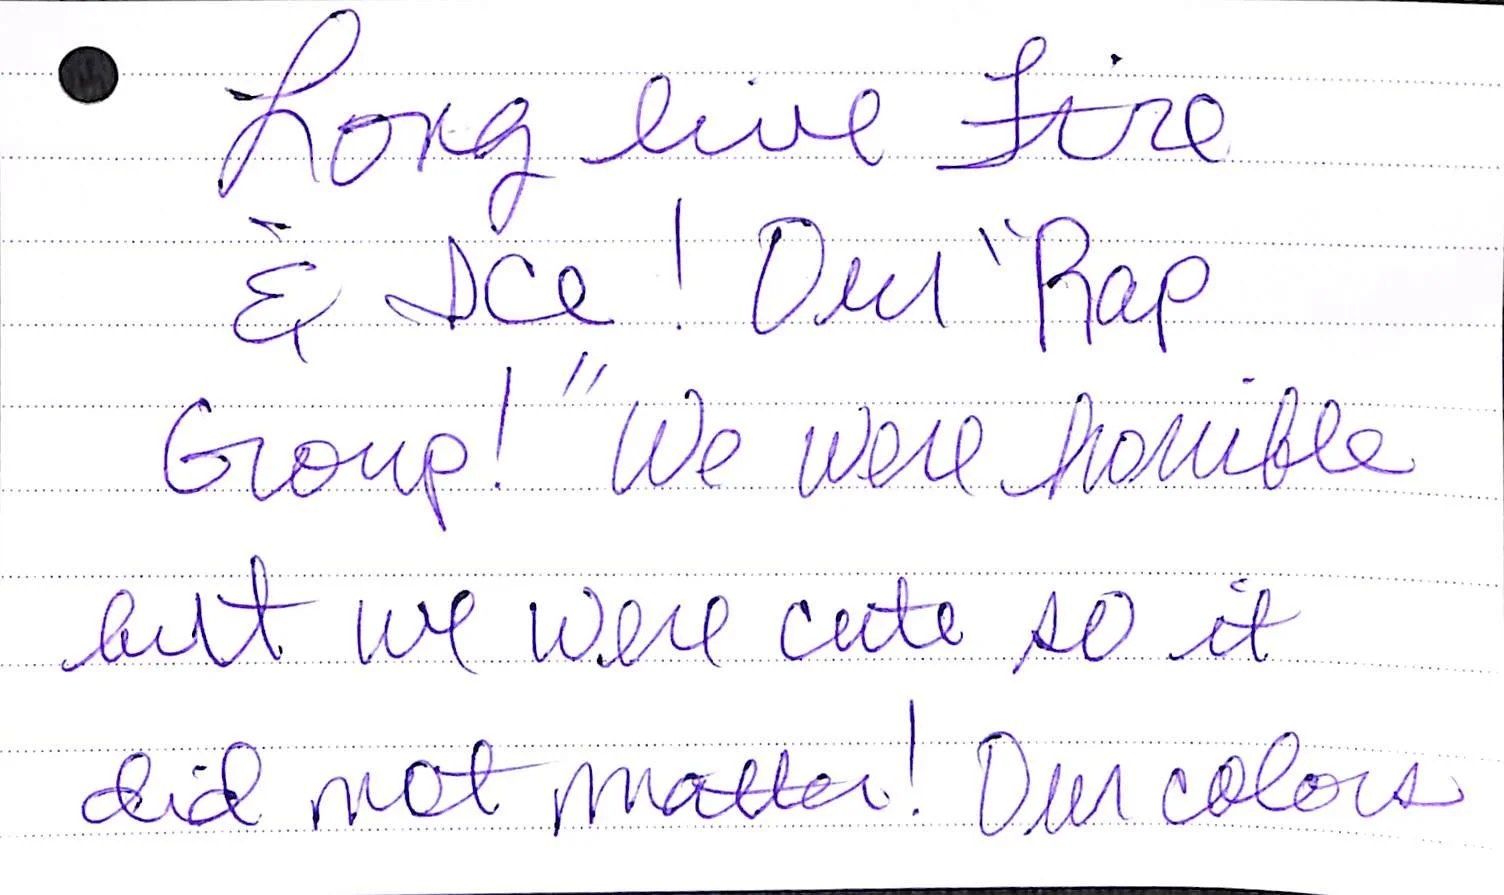 Long live Fire
& Ice! Our "Rap
Group!" We were horrible
but we were cute so it
did not matter! Our colors